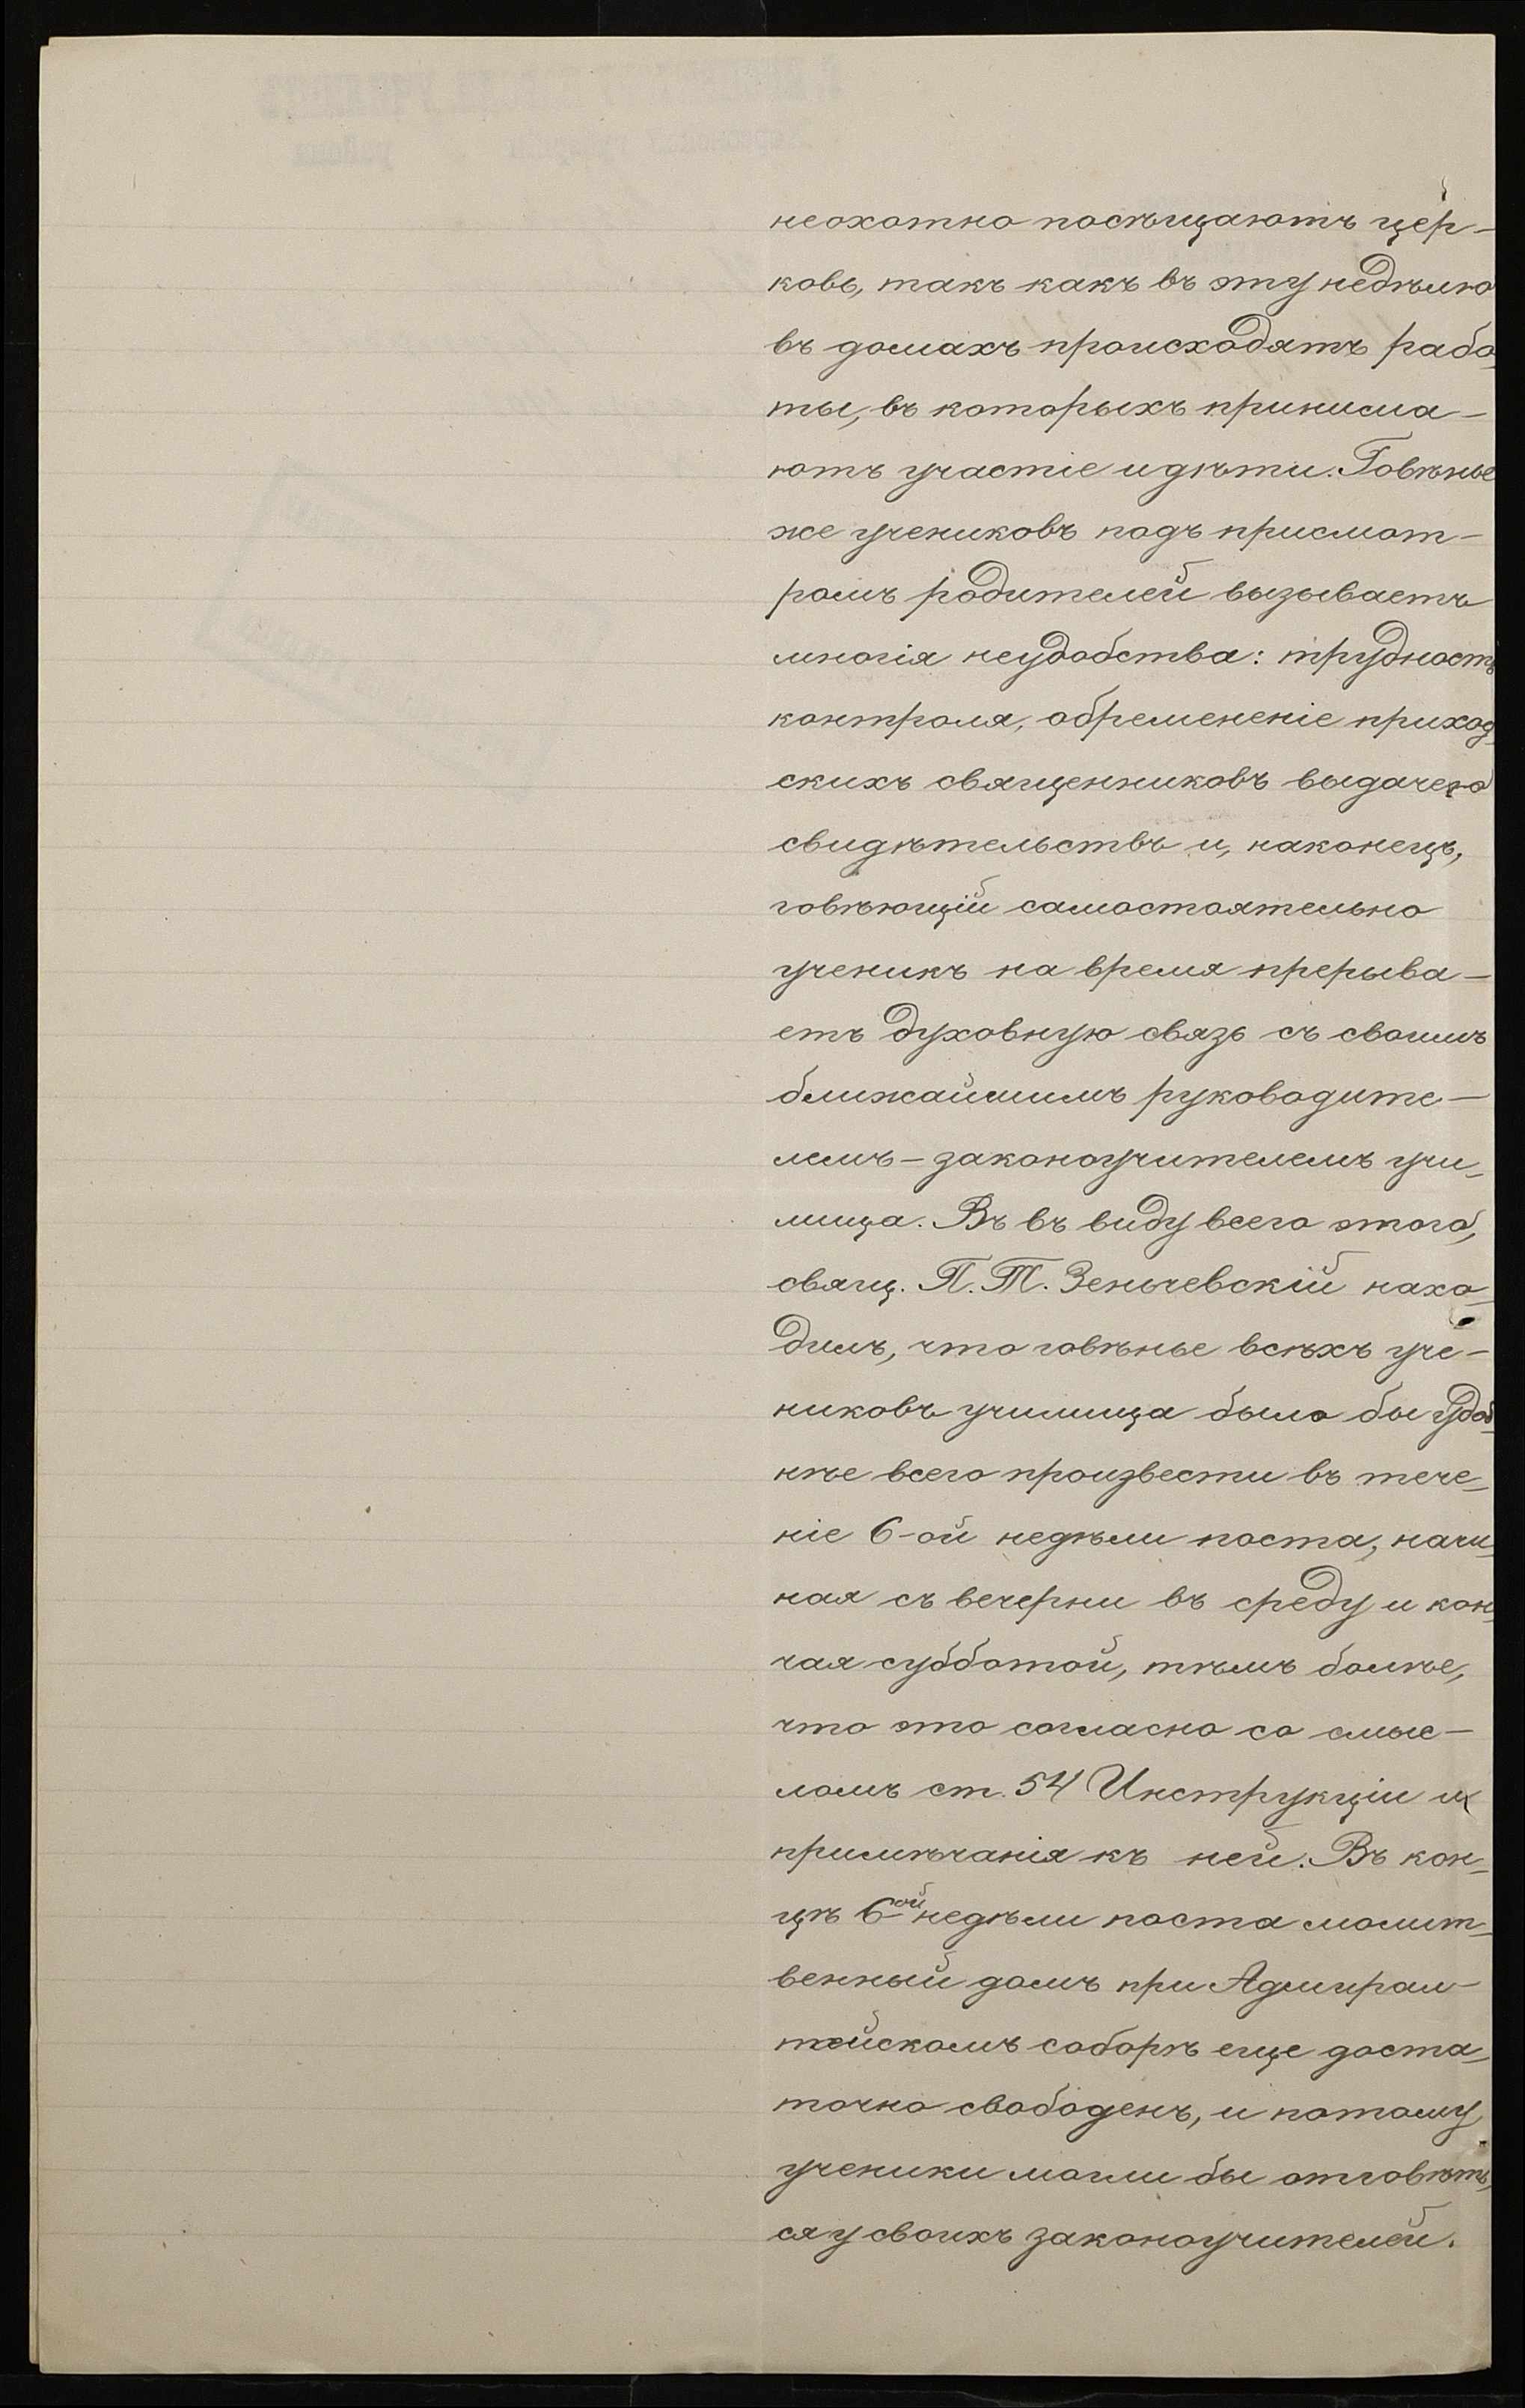 неохотно посѣщаютъ цер-
ковь, такъ какъ въ эту недѣлю
въ домахъ происходятъ рабо-
ты, въ которыхъ принима-
ютъ участіе и дѣти. Говѣнье
же учениковъ подъ присмот-
ромъ родителей вызываетъ
многія неудобства: трудность
контроля, обремененіе приход-
скихъ священниковъ выдачею
свидѣтельствъ и, наконецъ,
говѣющій самостоятельно
ученикъ на время прерыва-
етъ духовную связь съ своимъ
ближайшимъ руководите-
лемъ - законоучителемъ учи-
лища. Въ въ виду всего этого,
свящ. П. Т. Зеньчевскій нахо-
дилъ, что говѣнье всѣхъ уче-
никовъ училища было бы удоб-
нѣе всего произвести въ тече-
ніе 6-ой недѣли поста, начи-
ная съ вечерни въ среду и кон-
чая субботой, тѣмъ болѣе,
что это согласно со смыс-
ломъ ст. 54 Инструкціи и
примѣчанія къ ней. Въ кон-
цѣ 6-ой недѣли поста молит-
венный домъ при Адмирал-
тейскомъ соборѣ еще доста-
точно свободенъ, и потому
ученики могли бы отговѣть-
ся у своихъ законоучителей.